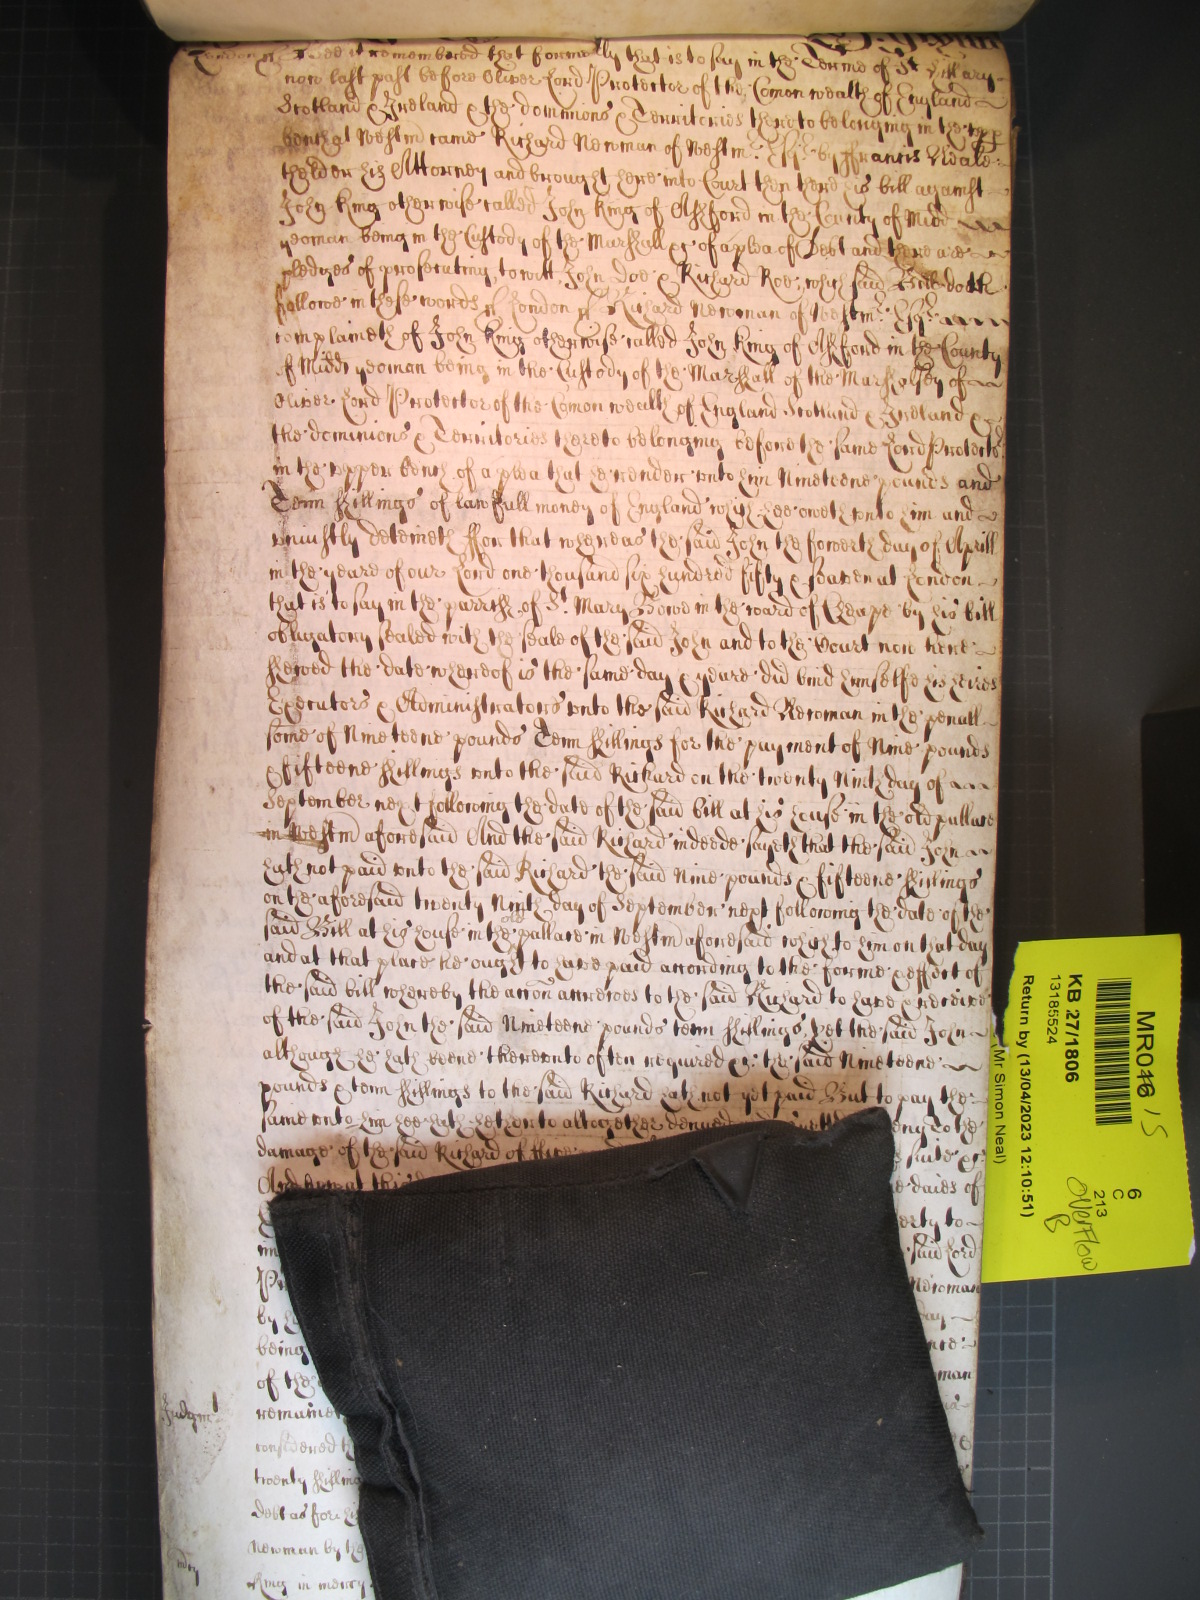 London ss Bee it remembered that formerly that is to say in the Terme of St Hillary
now last past before Oliver Lord Protector of the Comon wealth of England
Scotland & Ireland & the dominions & Territories thereto belonging in the upp
bench at Westm came Richard Newman of Westmr Esqr by ffrancis
thelder his Attorney and brought here into Court then there his bill against
John King otherwise called John King of Ashford in the County of Midd
yeoman being in the Custody of the Marshall &c of a plea of Debt and there are
pledges of prosecuting, to witt, John Doe & Richard Roe, which said Bill doth
followe in these words ss London ss Richard Newman of Westmr Esqr
complaineth of John King otherwise called John King of Ashford in the County
of Midd yeoman being in the Custody of the Marshall of the Marshalsey of
Oliver Lord Protector of the Comon wealth of England Scotland & Ireland &
the dominions & Territories thereto belonging before the same Lord Protector
in the upper bench of a plea that he render unto him Nineteene pounds and
Tenn shillings of lawfull money of England which hee oweth unto him and
uniustly deteineth ffor that whereas the said John the fowerth day of Aprill
in the yeare of our Lord one thousand six hundred fifty & Seaven at London
that is to say in the parrish of St Mary Bowe in the ward of Cheape by his bill
obligatory sealed with the seale of the said John and to the Court now here
shewed the date whereof is the same day & yeare did bind himselfe his heires
Executors & Administrators unto the said Richard Newman in the penall
some of Nineteene pounds Tenn shillings for the payment of Nine pounds
& fifteene shillings unto the said Richard on the twenty Ninth day of
September next following the date of the said bill at his house in the old pallace
in Westm aforesaid And the said Richard indeede sayeth that the said John
hath not paid unto the said Richard the said Nine pounds & fifteene shillings
on the aforesaid twenty Ninth day of September next following the date of the
said Bill at his house in the old pallace in Westm aforesaid which to him on that day
and at that place he ought to have paid according to the forme & effect of
the said bill whereby the accon accrewes to the said Richard to have & receive
of the said John the said Nineteene pounds tenn shillings, yet the said John
although he hath beene thereunto often required &c the said Nineteene
pounds & tenn shillings to the said Richard hath not yet paid But to pay the
same unto him hee hath hetherto altogether denyed and to the
damage of the said Richard of
suite &c
And now at this daies of
to
said Lord
Newman
by
being
of the
Judgmt
remaine
considered
twenty shilling
debt as for his
Newman by the
mcy
King in mercy
MR016 / S
KB 27/1806
13185524
Return by (13/04/2023 12:10:51)
(Mr Simon Neal)
6
C
213
Overflow
B